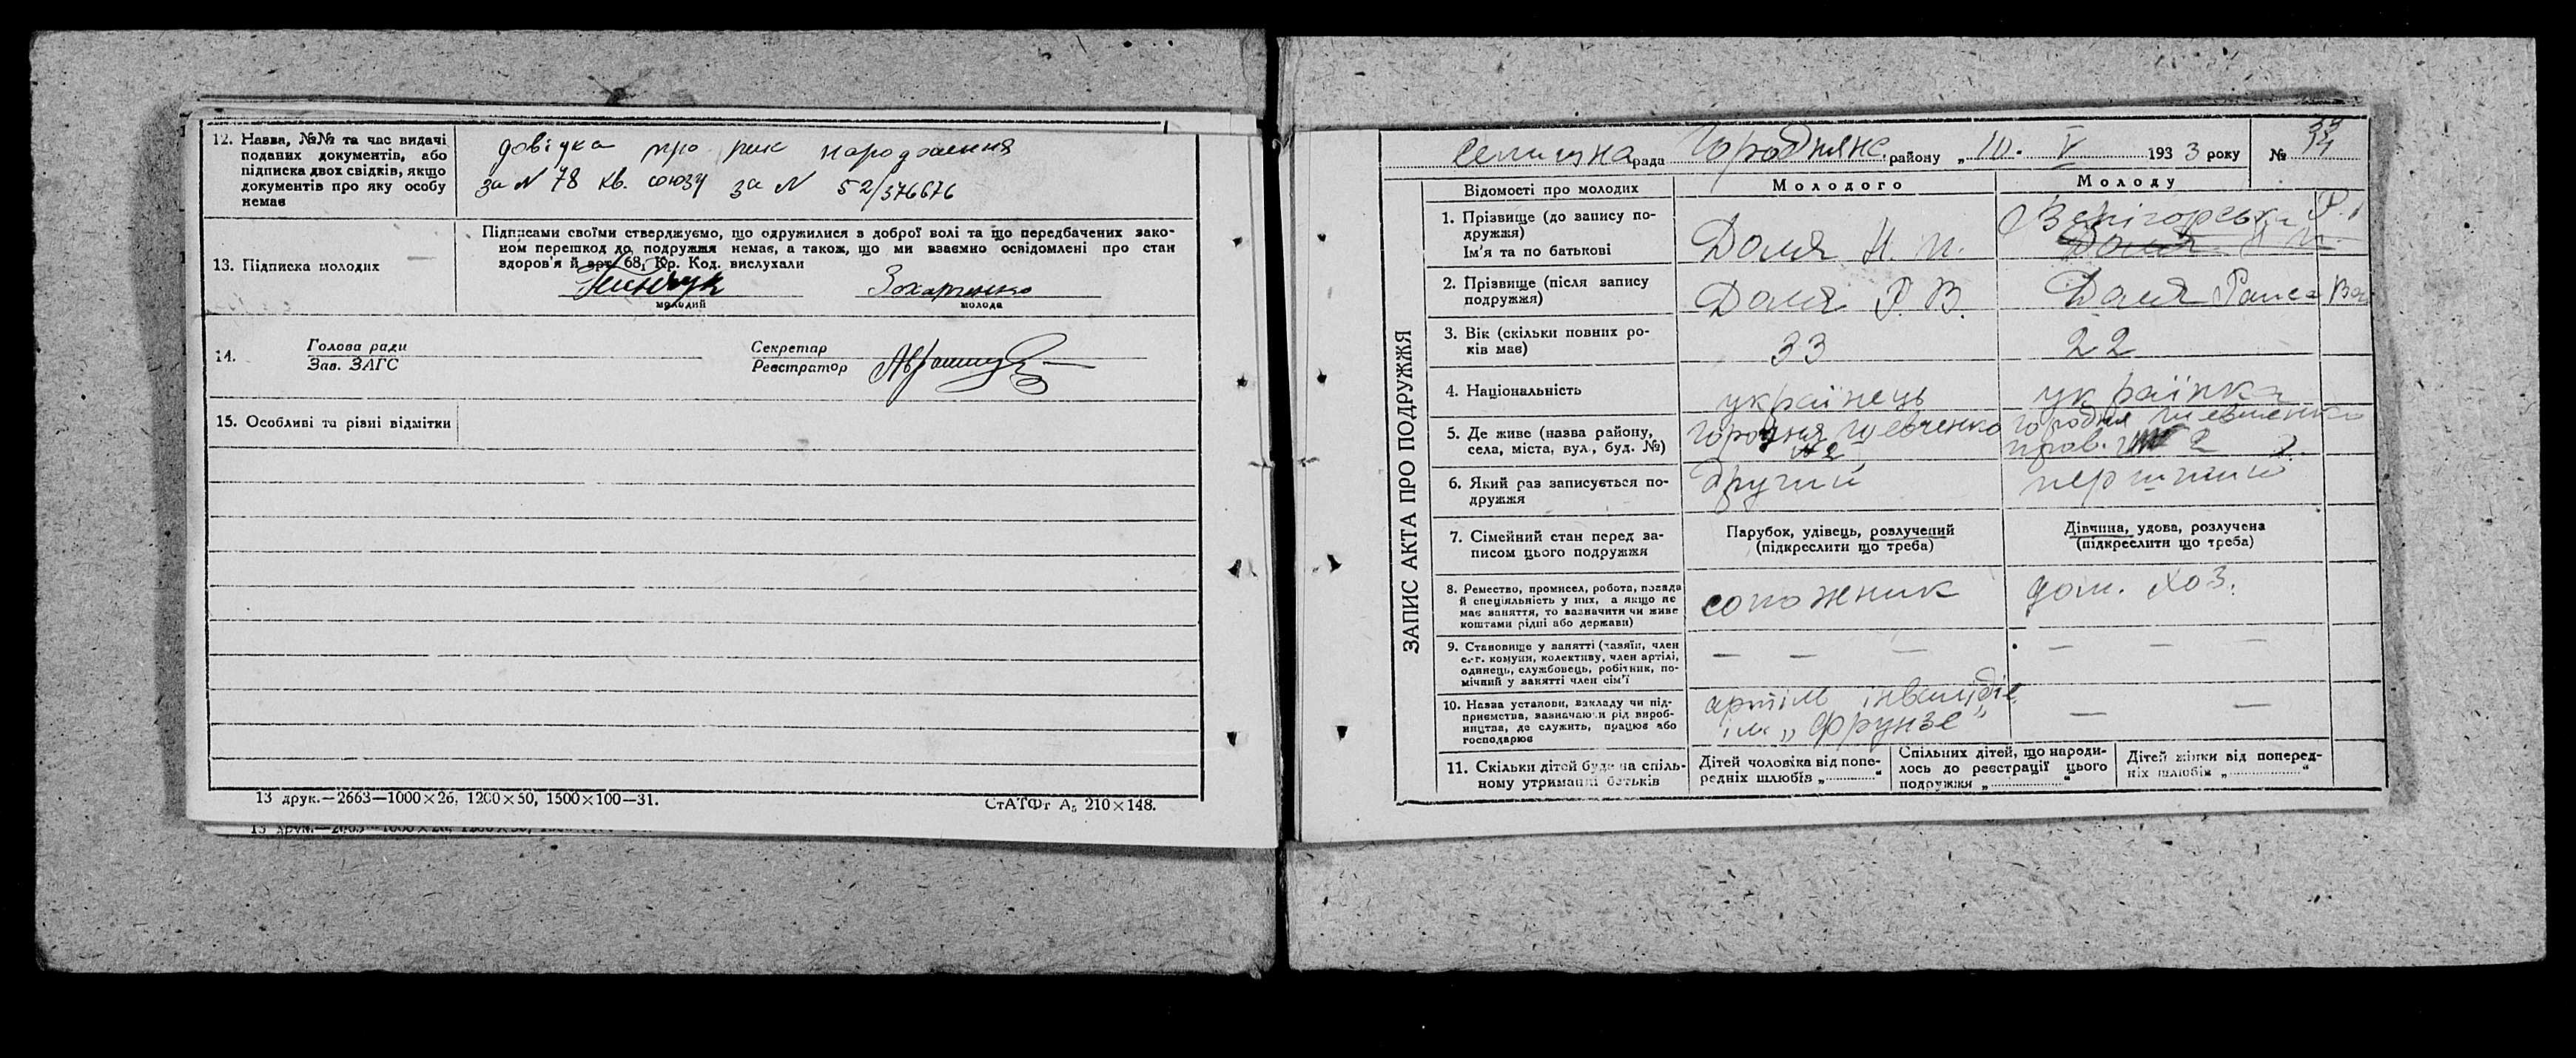 12. Назва, №№ та час видачі
поданих документів, або
підписка двох свідків, якщо
документів про яку особу
немає
довідка про рик народження
за N 78 кв. союзу за N 52/376676
13. Підписка молодих
Підписами своїми стверджуємо, що одружилися з доброї волі та що передбачених зако-
ном перешкод до подружжя немає, а також, що ми взаємно освідомлені про стан
здоров'я й арт. 68, Кр. Код. вислухали
Захарченко
молодий
молода
14.
Голова ради
Зав. ЗАГС
Секретар
Реєстратор
15. Особливі та різні відмітки
13 друк.—2663—1000×26, 1200×50, 1500×100—31.
СтАТФг А₅ 210×148.
ЗАПИС АКТА ПРО ПОДРУЖЖЯ
Селищна рада Городнянс. району „10. V 1933 року №
Відомості про молодих
Молодого
Молоду
1. Прізвище (до запису по-
дружжя)
Ім'я та по батькові
Доля Н. М.
Звенігорська Р.
Доля Н. М.
2. Прізвище (після запису
подружжя)
Доля Р. В.
Доля Раиса Вас
3. Вік (скільки повних ро-
ків має)
33
22
4. Національність
українець
українка
5. Де живе (назва району,
села, міста, вул., буд. №)
Городня Шевченко
N 2
Городня Шевченко
пров. 2
6. Який раз записується по-
дружжя
другий
перший
7. Сімейний стан перед за-
писом цього подружжя
Парубок, удівець, розлучений
(підкреслити що треба)
Дівчина, удова, розлучена
(підкреслити що треба)
8. Ремество, промисел, робота, посада
й спеціяльність у них, а якщо не
має заняття, то зазначити чи живе
коштами рідні або держави)
сопожник
дом. хоз.
9. Становище у занятті (хазяїн, член
с.-г. комуни, колективу, член артілі,
одинець, службовець, робітник, по-
мічний у занятті член сім'ї
— — —
— —
10. Назва установи, закладу чи під-
приємства, зазначаючи рід вироб-
ництва, де служить, працює або
господарює
артіль інвалідів
ім. „Фрунзе"
— —
11. Скільки дітей буде на спіль-
ному утриманні батьків
Дітей чоловіка від попе-
редніх шлюбів „ “
Спільних дітей, що народи-
лось до реєстрації цього
подружжя „ “
Дітей жінки від поперед-
ніх шлюбів „ “